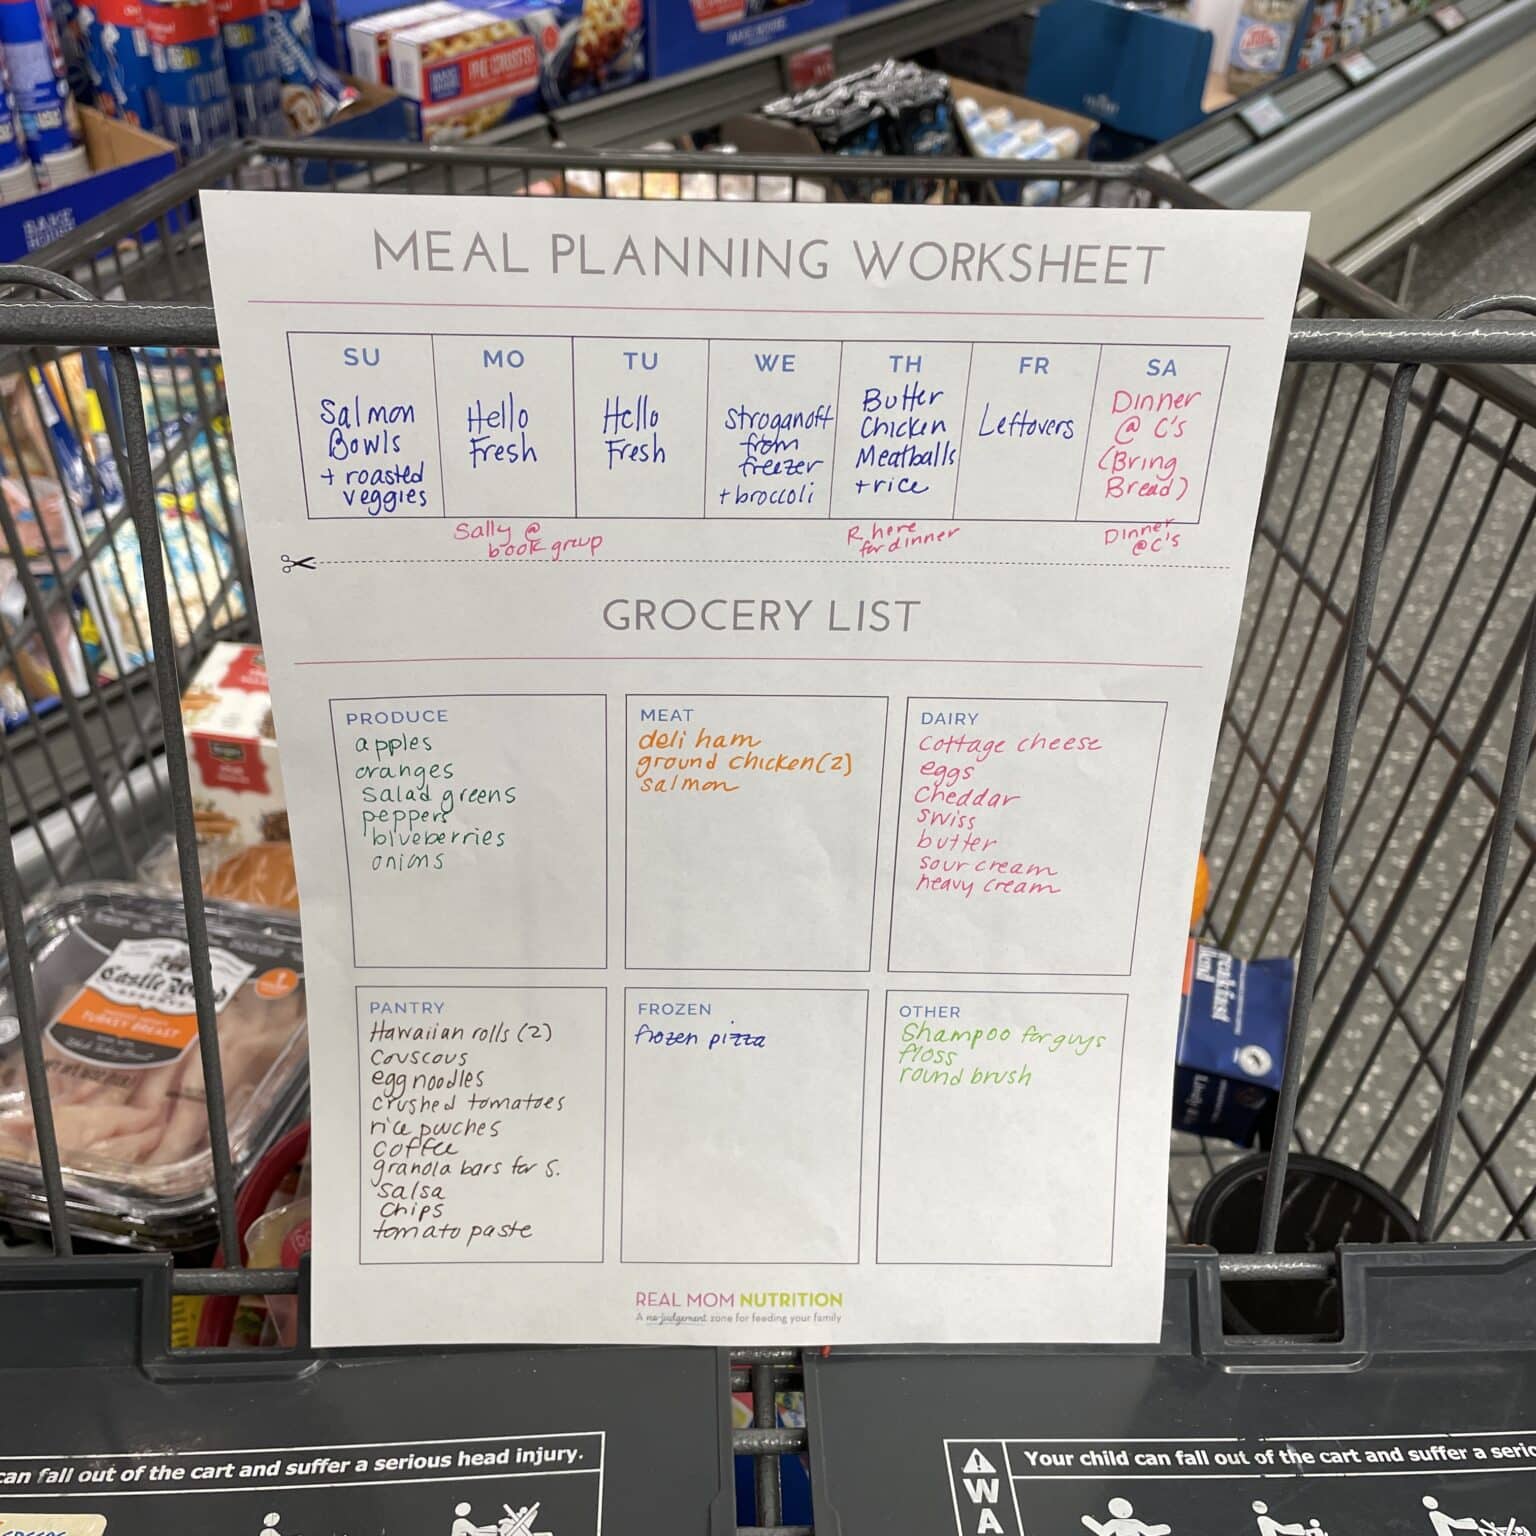 BAKE HOUSE
PIE CRUSTS
BAKE HOUSE
MEAL PLANNING WORKSHEET
SU
Salmon
Bowls
+ roasted
veggies
MO
Hello
Fresh
TU
Hello
Fresh
WE
Stroganoff
from
freezer
+ broccoli
TH
Butter
Chicken
Meatballs
+ rice
FR
Leftovers
SA
Dinner
@ C's
(Bring
Bread)
Sally @
book group
R here
for dinner
Dinner
@ C's
GROCERY LIST
PRODUCE
apples
oranges
salad greens
peppers
blueberries
onions
MEAT
deli ham
ground chicken (2)
salmon
DAIRY
cottage cheese
eggs
cheddar
swiss
butter
sour cream
heavy cream
PANTRY
Hawaiian rolls (2)
couscous
egg noodles
crushed tomatoes
rice pouches
coffee
granola bars for S.
salsa
chips
tomato paste
FROZEN
frozen pizza
OTHER
Shampoo for guys
floss
round brush
REAL MOM NUTRITION
A no-judgement zone for feeding your family
Castle Wood
TURKEY BREAST
can fall out of the cart and suffer a serious head injury.
Your child can fall out of the cart and suffer a serio
WA